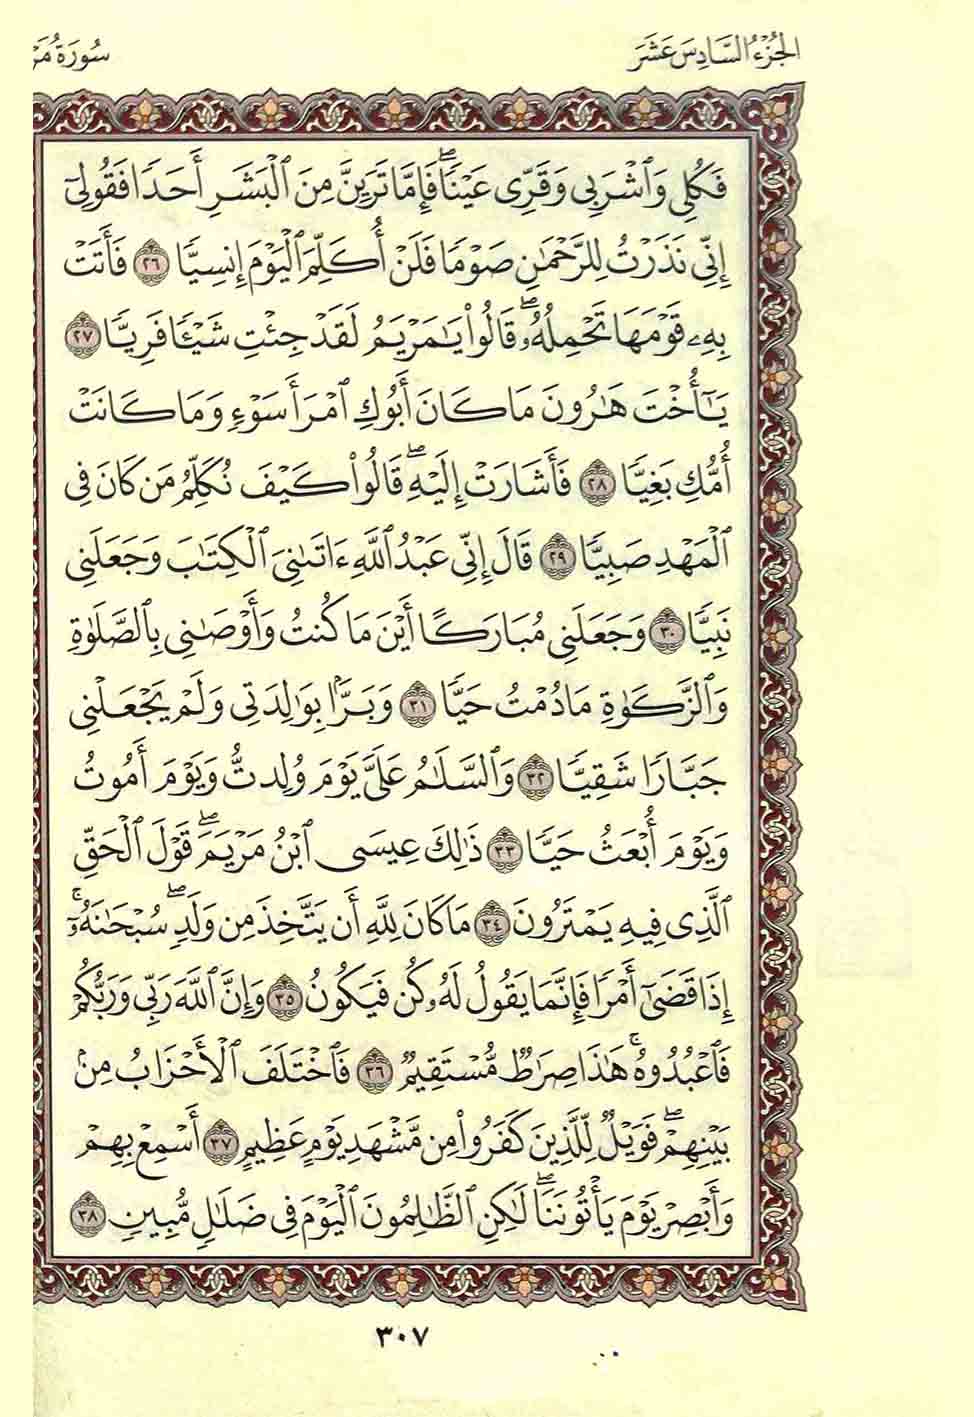 الجزء السادس عشر
سورة مر
فَكُلِى وَٱشْرَبِى وَقَرِّى عَيْنًاۖ فَإِمَّا تَرَيِنَّ مِنَ ٱلْبَشَرِ أَحَدًا فَقُولِىٓ
إِنِّى نَذَرْتُ لِلرَّحْمَٰنِ صَوْمًا فَلَنْ أُكَلِّمَ ٱلْيَوْمَ إِنسِيًّا ٢٦ فَأَتَتْ
بِهِۦ قَوْمَهَا تَحْمِلُهُۥۖ قَالُوا۟ يَٰمَرْيَمُ لَقَدْ جِئْتِ شَيْـًٔا فَرِيًّا ٢٧
يَٰٓأُخْتَ هَٰرُونَ مَا كَانَ أَبُوكِ ٱمْرَأَ سَوْءٍ وَمَا كَانَتْ
أُمُّكِ بَغِيًّا ٢٨ فَأَشَارَتْ إِلَيْهِۖ قَالُوا۟ كَيْفَ نُكَلِّمُ مَن كَانَ فِى
ٱلْمَهْدِ صَبِيًّا ٢٩ قَالَ إِنِّى عَبْدُ ٱللَّهِ ءَاتَىٰنِىَ ٱلْكِتَٰبَ وَجَعَلَنِى
نَبِيًّا ٣٠ وَجَعَلَنِى مُبَارَكًا أَيْنَ مَا كُنتُ وَأَوْصَٰنِى بِٱلصَّلَوٰةِ
وَٱلزَّكَوٰةِ مَا دُمْتُ حَيًّا ٣١ وَبَرًّۢا بِوَٰلِدَتِى وَلَمْ يَجْعَلْنِى
جَبَّارًا شَقِيًّا ٣٢ وَٱلسَّلَٰمُ عَلَىَّ يَوْمَ وُلِدتُّ وَيَوْمَ أَمُوتُ
وَيَوْمَ أُبْعَثُ حَيًّا ٣٣ ذَٰلِكَ عِيسَى ٱبْنُ مَرْيَمَۖ قَوْلَ ٱلْحَقِّ
ٱلَّذِى فِيهِ يَمْتَرُونَ ٣٤ مَا كَانَ لِلَّهِ أَن يَتَّخِذَ مِن وَلَدٍۖ سُبْحَٰنَهُۥٓۚ
إِذَا قَضَىٰٓ أَمْرًا فَإِنَّمَا يَقُولُ لَهُۥ كُن فَيَكُونُ ٣٥ وَإِنَّ ٱللَّهَ رَبِّى وَرَبُّكُمْ
فَٱعْبُدُوهُۚ هَٰذَا صِرَٰطٌ مُّسْتَقِيمٌ ٣٦ فَٱخْتَلَفَ ٱلْأَحْزَابُ مِنۢ
بَيْنِهِمْۖ فَوَيْلٌ لِّلَّذِينَ كَفَرُوا۟ مِن مَّشْهَدِ يَوْمٍ عَظِيمٍ ٣٧ أَسْمِعْ بِهِمْ
وَأَبْصِرْ يَوْمَ يَأْتُونَنَاۖ لَٰكِنِ ٱلظَّٰلِمُونَ ٱلْيَوْمَ فِى ضَلَٰلٍ مُّبِينٍ ٣٨
٣٠٧